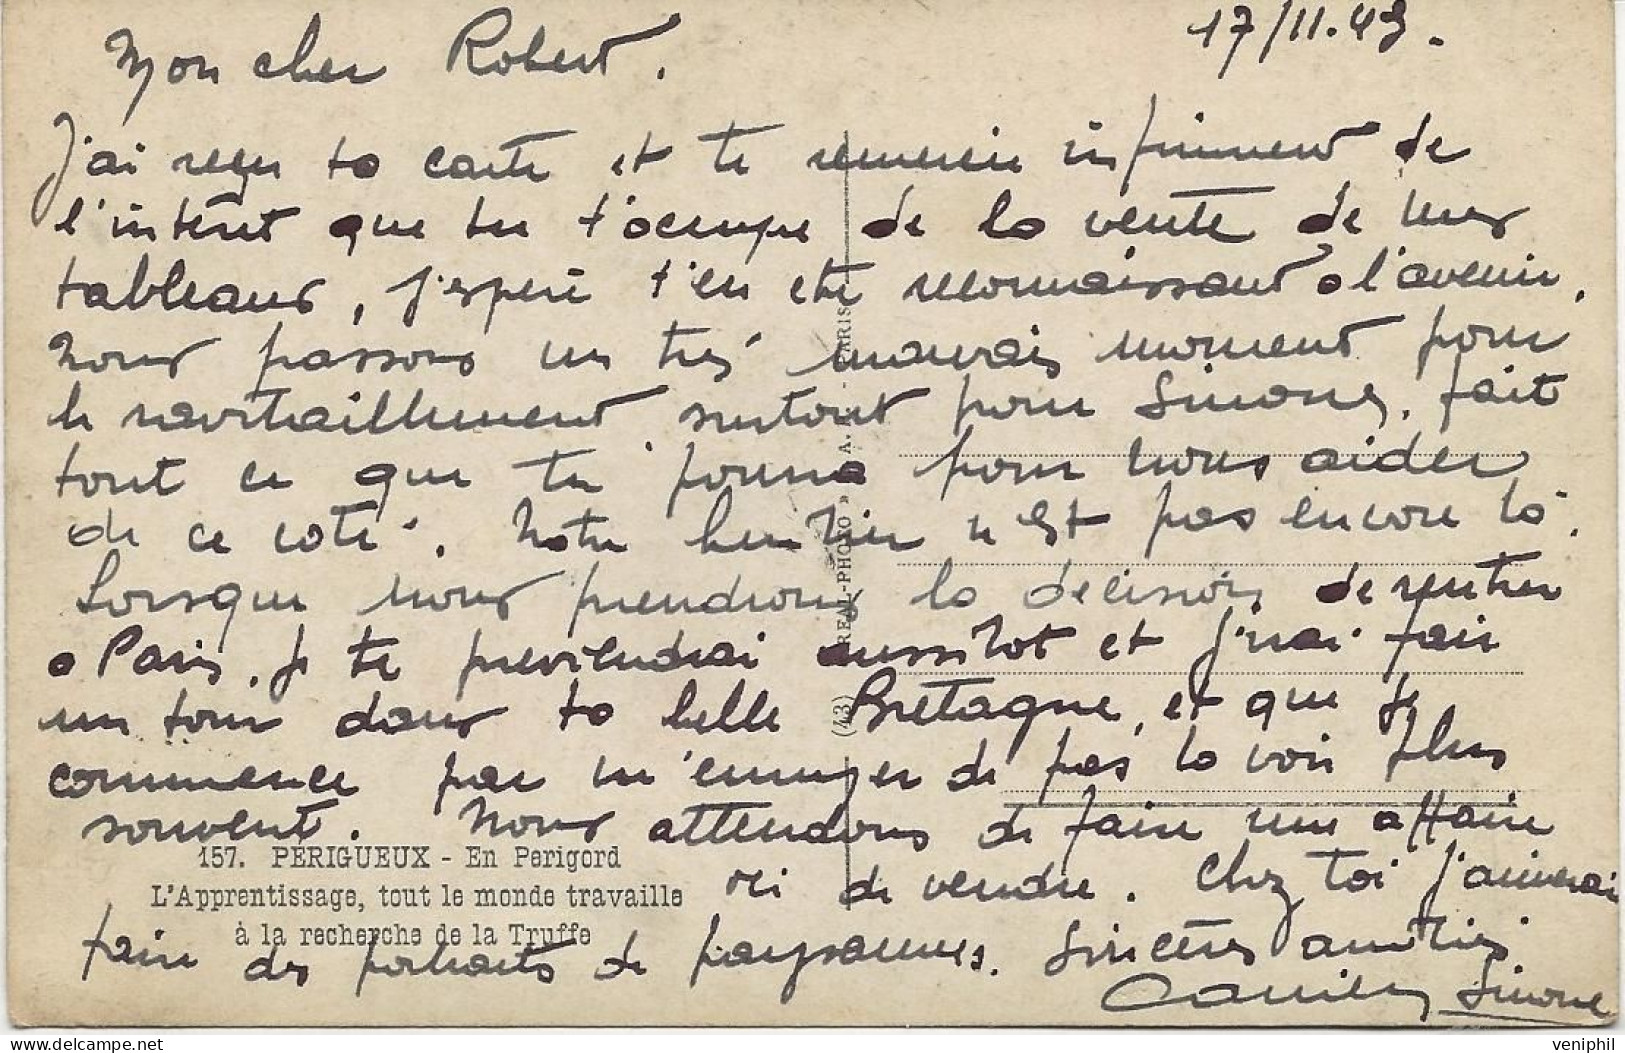 17/11.43.
Mon cher Robert.
J'ai reçu ta carte et te remercie infiniment de
l'intérêt que tu t'occupe de la vente de mes
tableaux, j'espère t'en être reconnaissant a l'avenir.
Nous passons un très mauvais moment pour
le ravitaillement surtout pour Simone, fait
tout ce que tu pourra pour nous aider
de ce coté. Notre héritier n'est pas encore là.
Lorsque nous prendrons la décision de rentrer
a Paris, je te previendrai aussitot et j'irai faire
un tour dans ta belle Bretagne, et que je
commence par m'ennuyer de pas la voir plus
souvent. Nous attendons de faire une affaire
ici de vendre. Chez toi j'aimerai
faire des portraits de paysannes. Sincères amitiés
Simone
157. PÉRIGUEUX - En Périgord
L'Apprentissage, tout le monde travaille
à la recherche de la Truffe
(43) « REAL-PHOTO » A. PARIS
veniphil